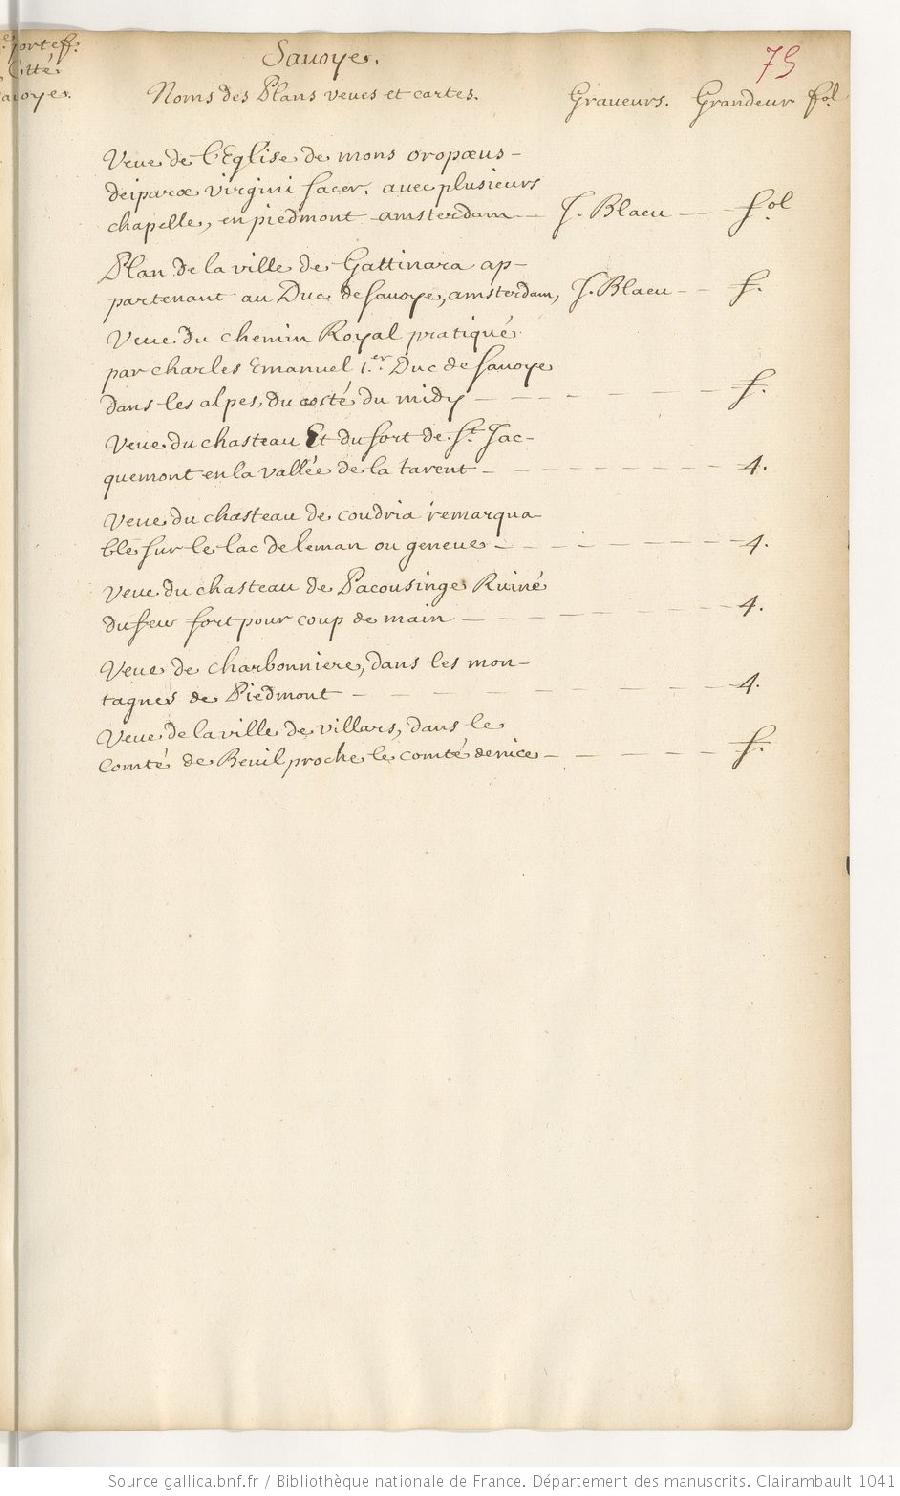 e portef.
Cotté
avoye.
Savoye.
75
Noms des Plans veues et cartes. Graveurs. Grandeur fol
Veue de l'Eglise de mons oropæus-
deiparæ virgini sacer. avec plusieurs
chapelle, en piedmont amsterdam — J. Blaeu — — fol
Plan de la ville de Gattinara ap-
partenant au Duc de Savoye, amsterdam, J. Blaeu - - f.
Veue du chemin Royal pratiqué
par charles Emanuel 1.er Duc de Savoye
dans les alpes, du costé du midy - - - - - - f.
Veue du chasteau Et du fort de St. Jac-
quemont en la vallée de la tarent - - - - - - 4.
Veue du chasteau de coudria remarqua
ble sur le lac de leman ou geneve - - - - - - 4.
Veue du chasteau de Pacousinge Ruiné
du feu fort pour coup de main - - - - - - 4.
Veue de charbonniere, dans les mon-
tagnes de Piedmont - - - - - - - 4.
Veue de la ville de villars, dans le
Comté de Beuil proche le comté de nice - - - - - f.
Source gallica.bnf.fr / Bibliothèque nationale de France. Département des manuscrits. Clairambault 1041